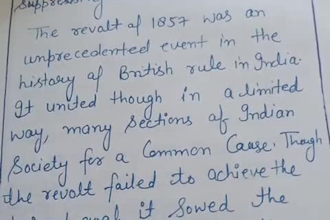 Suppressing
The revolt of 1857 was an
unprecedented event in the
history of British rule in India.
It united though in a limited
way, many sections of Indian
Society for a Common Cause. Though
the revolt failed to achieve the
goal it Sowed the